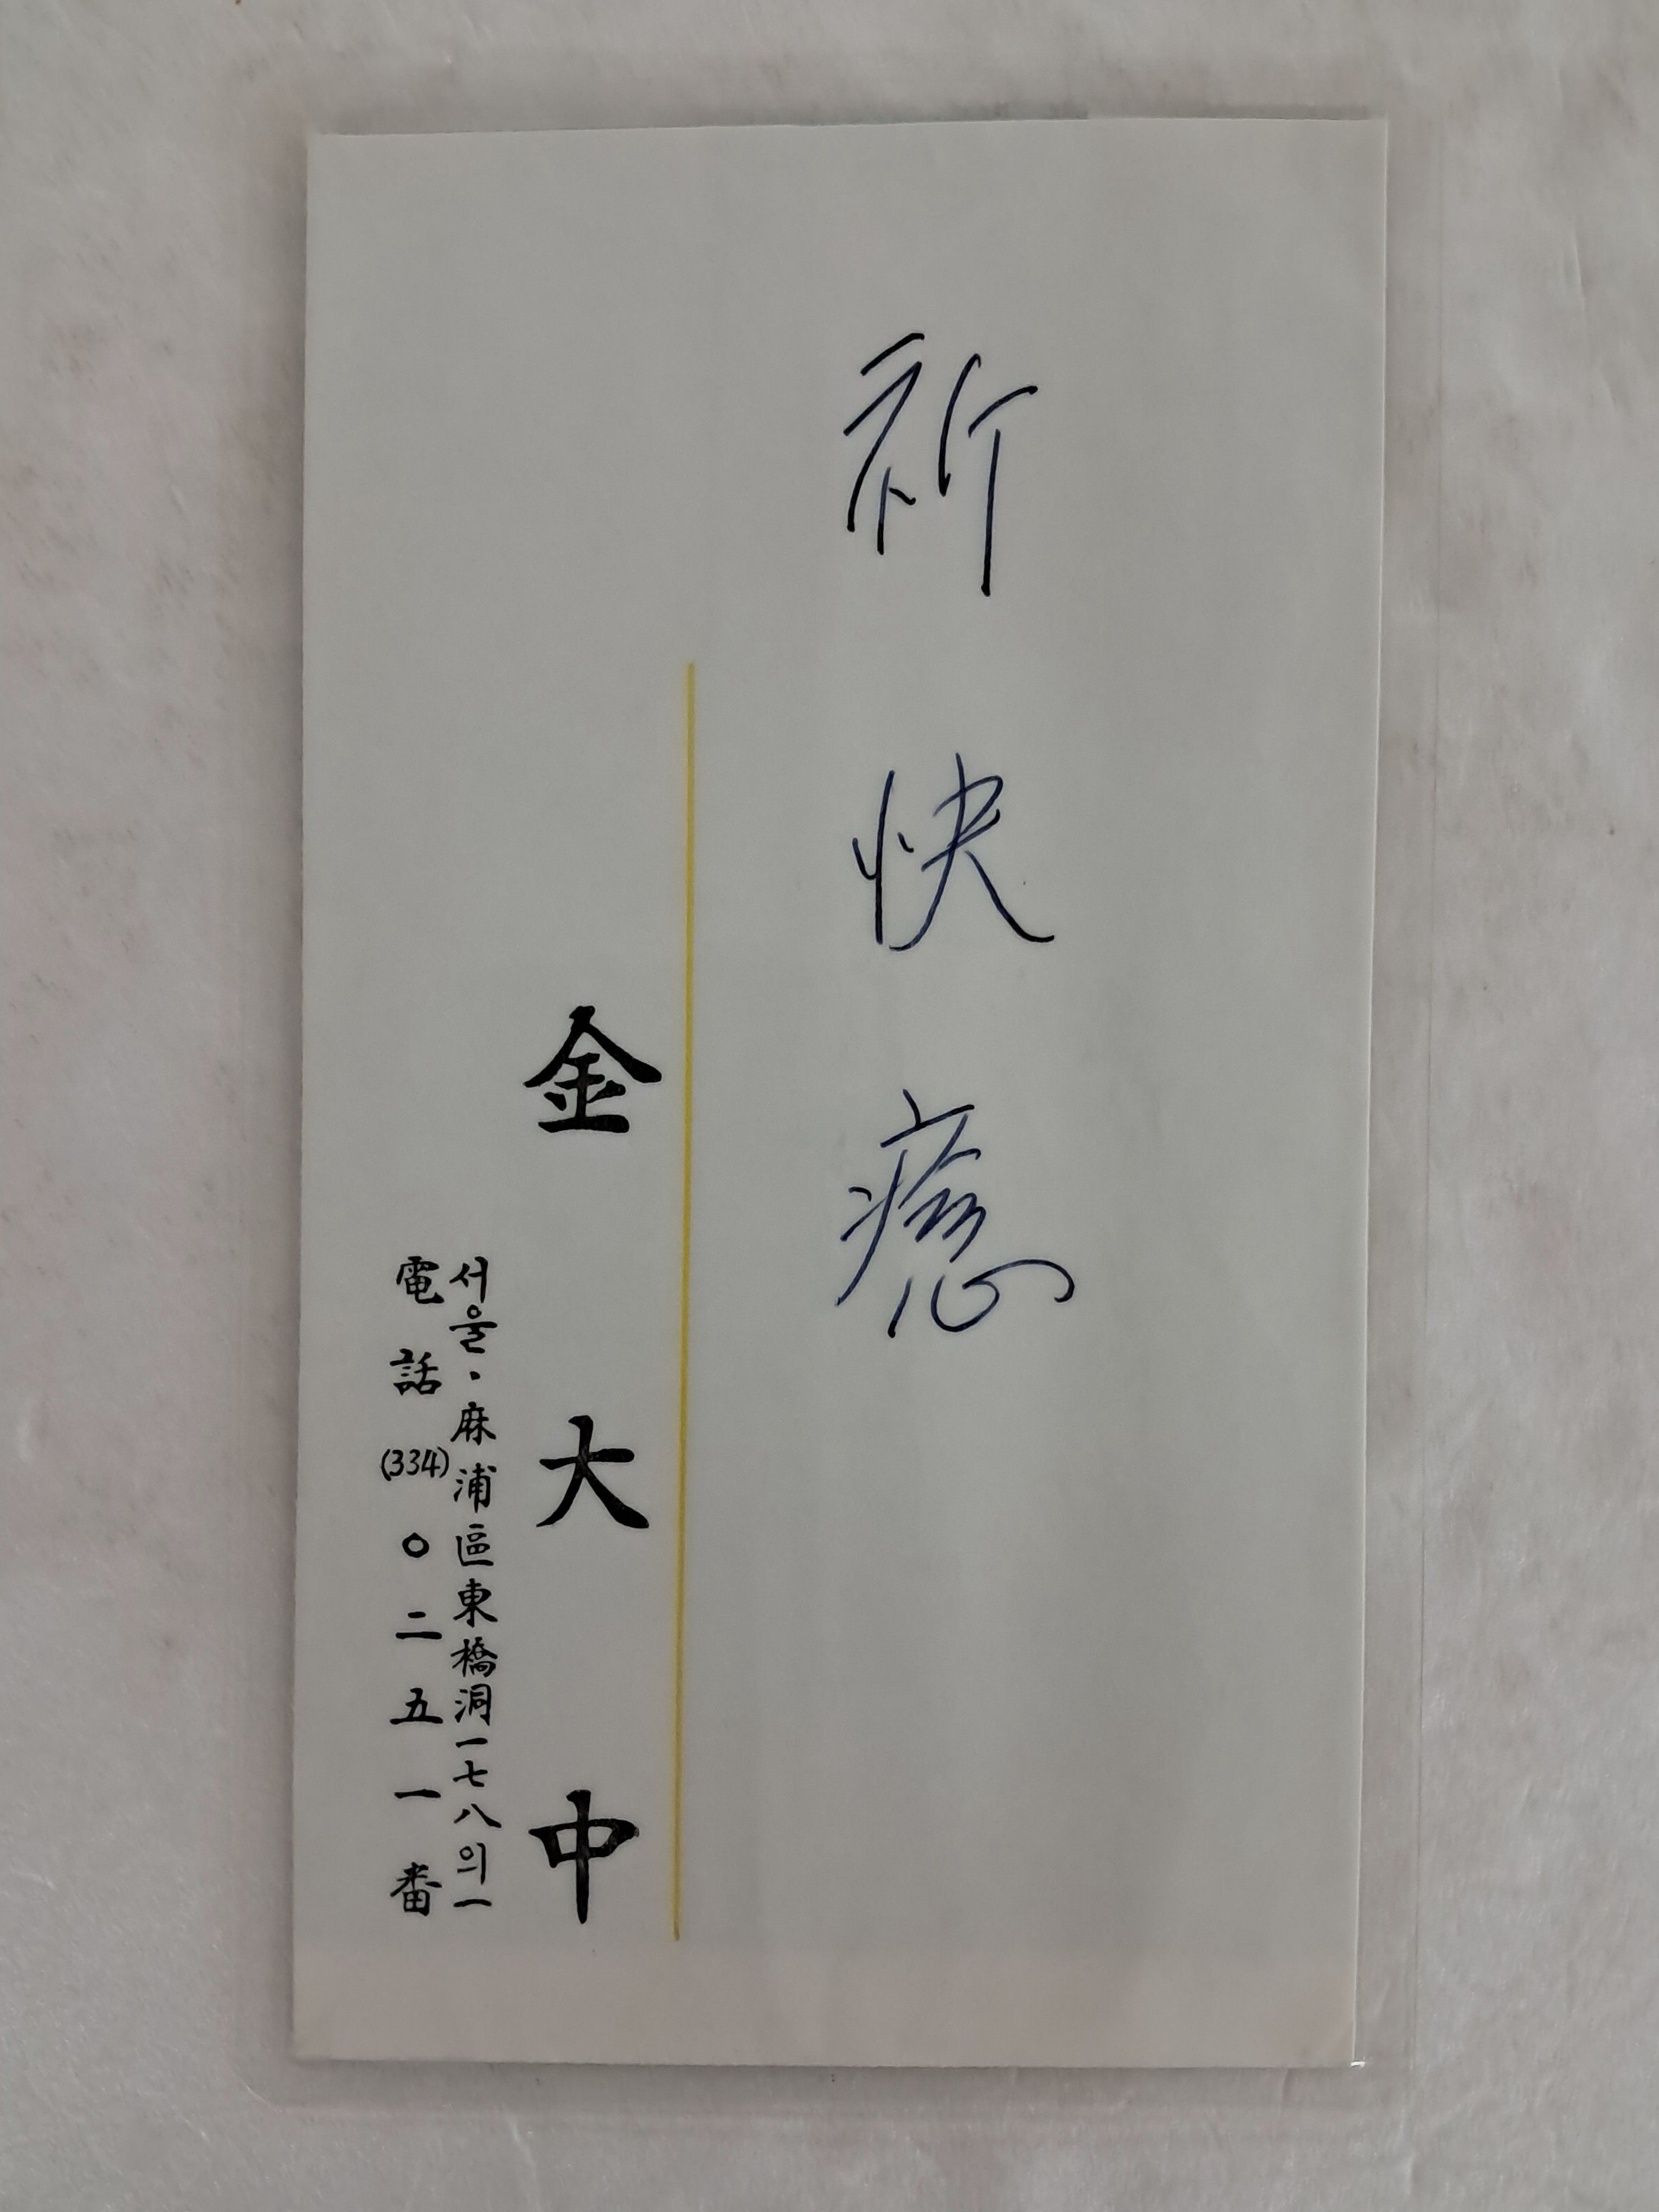 祈快癒
金大中
서울、麻浦區東橋洞一七八의一
電話(334)〇二五一番